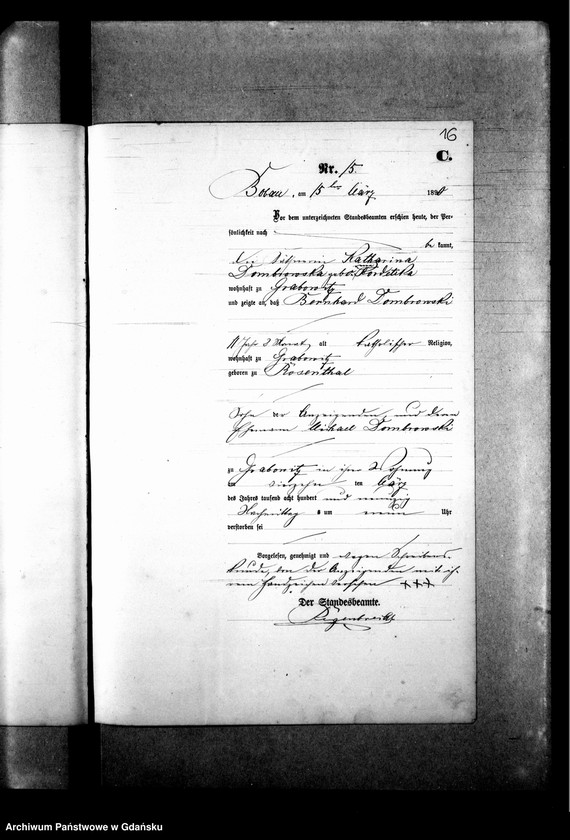 16
C.
Nr. 15.
Bobau, am 15ten März 1890
Vor dem unterzeichneten Standesbeamten erschien heute, der Per-
sönlichkeit nach
be kannt,
die Käthnerin Katharina
Dombrowska geborne
wohnhaft zu Grabowitz
und zeigte an, daß Bernhard Dombrowski
11 Jahr 8 Monat, alt katholischer Religion,
wohnhaft zu Grabowitz
geboren zu Rosenthal
Sohn der Anzeigenden und deren
Ehemann Michael Dombrowski
zu Grabowitz in ihrer Wohnung
am vierzehn ten März
des Jahres tausend acht hundert und neunzig
Nachmittag s um neun Uhr
verstorben sei
Vorgelesen, genehmigt und wegen Schreibens-
kunde, von der Anzeigenden mit ih-
rem Handzeichen versehen +++
Der Standesbeamte.
Regenbrecht
Archiwum Państwowe w Gdańsku